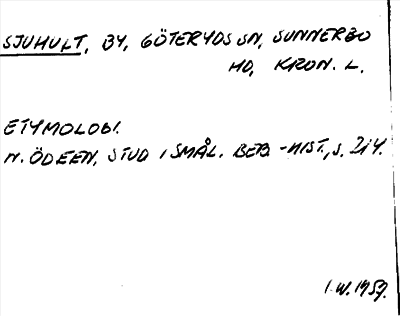 SJUHULT, BY, GÖTERYDS SN, SUNNERBO
HD, KRON. L.
ETYMOLOGI.
N. ÖDEEN, STUD I SMÅL. BEB. -HIST., S. 214.
I.W. 1957.